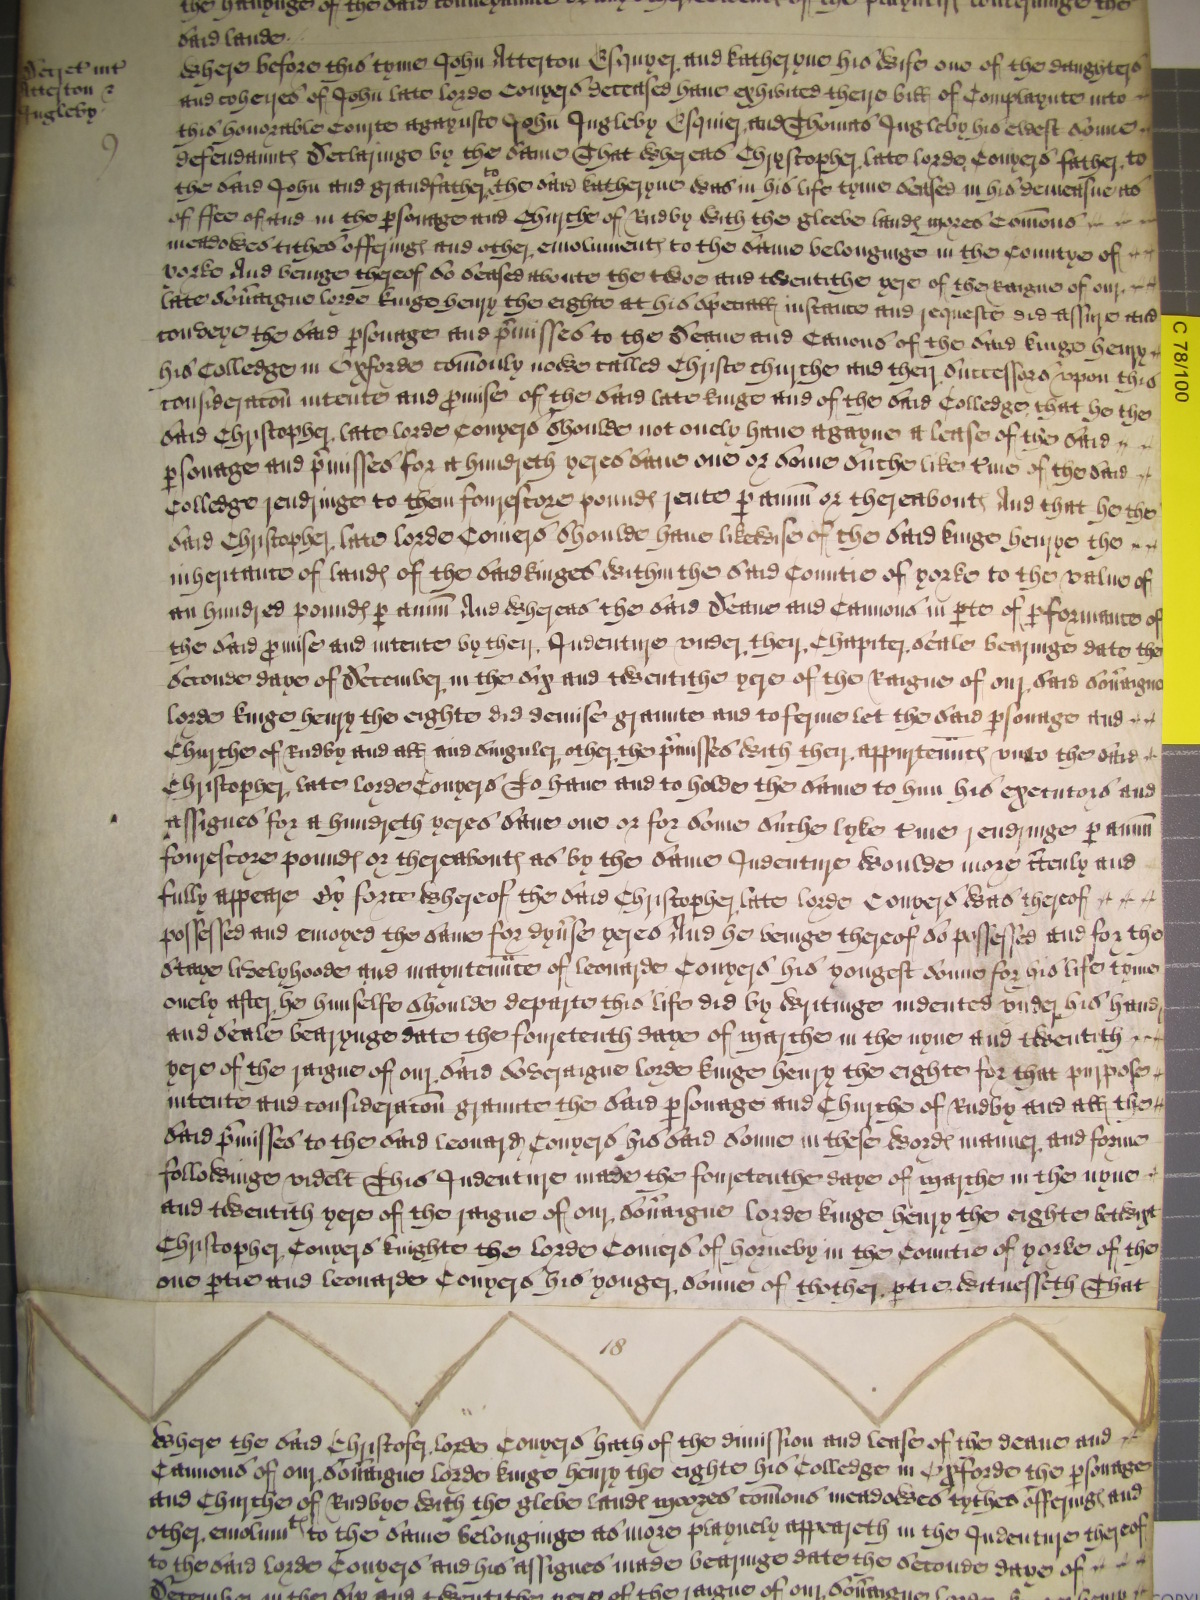 the havynge of the said conveyaunce or any other evidence of the playntiffs concerninge the
said lande.
Decret int
Atterton &
Ingleby
9
Where before this tyme John Atterton Esquyer and Katheryne his wife one of the daughters
and coheires of John late lorde Conyers deceased have exhibited theire bill of Complaynte into
this honorable Courte agaynste John Ingleby Esquier and Thomas Ingleby his eldest sonne
defendaunts Declaringe by the same That whereas Chrystopher late lorde Conyers father to
the said John and grandfather to the said Katheryne was in his life tyme seased in his demeasne as
of ffee of and in the psonage and Churche of Rudby with the gleebe lands mores Comons
meadowes tithes offerings and other emoluments to the same belonginge in the Countye of
yorke And beinge thereof so seased aboute the twoe and twentithe yere of the Raigne of our
late soūaigne lorde kinge henry the eighte at his speciall instance and requeste did assure and
conveye the said psonage and pmisses to the Deane and Canons of the said kinge henry
his Colledge in Oxforde comonly nowe called Christe churche and their successors upon this
consideracon intente and pmise of the said late kinge and of the said Colledge that he the
said Christopher late lorde Conyers shoulde not onely have agayne a lease of the said
psonage and pmisses for a hundreth yeres save one or some suche like tme of the said
Colledge rendringe to them fourescore pounds rente p annū or thereabouts And that he the
said Christopher late lorde Coniers shoulde have likewise of the said kinge henrye the
inheritance of lands of the said kinges within the said Countie of yorke to the value of
an hundred pounds p annū And whereas the said Deane and Cannons in pte of pformance of
the said pmise and intente by their Indenture under their Chapiter seale bearinge date the
seconde daye of December in the six and twentithe yere of the Raigne of our said soūaigne
lorde kinge henry the eighte did demise graunte and to ferme let the said psonage and
Churche of Rudby and all and singuler other the pmisses with their appurtenūcs unto the said
Christopher late lorde Conyers To have and to holde the same to him his executors and
assignes for a hundreth yeres save one or for some suche lyke tme rendringe p annū
fourescore pounds or thereabouts as by the same Indenture woulde more ctenly and
fully appeare By force whereof the said Christopher late lorde Conyers was thereof
possessed and enioyed the same for dyūse yeres And he beinge thereof so possessed and for the
staye livelyhoode and mayntenūce of leonarde Conyers his yongest sonne for his life tyme
onely after he himselfe shoulde departe this life did by writinge indented under his hand
and seale bearynge date the fourtenth daye of Marche in the nyne and twentith
yere of the raigne of our said soveraigne lorde kinge henry the eighte for that purpose
intente and consideracon graunte the said psonage and Churche of Rudby and all the
said pmisses to the said leonard Conyers his said sonne in these words manner and forme
followinge videlt This Indenture made the fourtenthe daye of Marche in the nyne
and twentith yere of the raigne of our soūaigne lorde kinge henry the eighte betwixt
Christopher Conyers knighte the lorde Coniers of horneby in the Countie of yorke of the
one ptie and leonarde Conyers his yonger sonne of thother ptie witnesseth That
18
Where the said Christofer lorde Conyers hath of the dimission and lease of the deane and
Cannons of our soūaigne lorde kinge henry the eighte his Colledge in Oxforde the psonage
and Churche of Rudbye with the glebe lands moores comons meadowes tythes offerings and
other emolumts to the same belonginge as more playnely appeareth in the Indenture thereof
to the said lorde Conyers and his assignes made bearinge date the seconde daye of
December in the six and twentithe yere of the raigne of our soūaigne lorde kinge henry
C 78/100